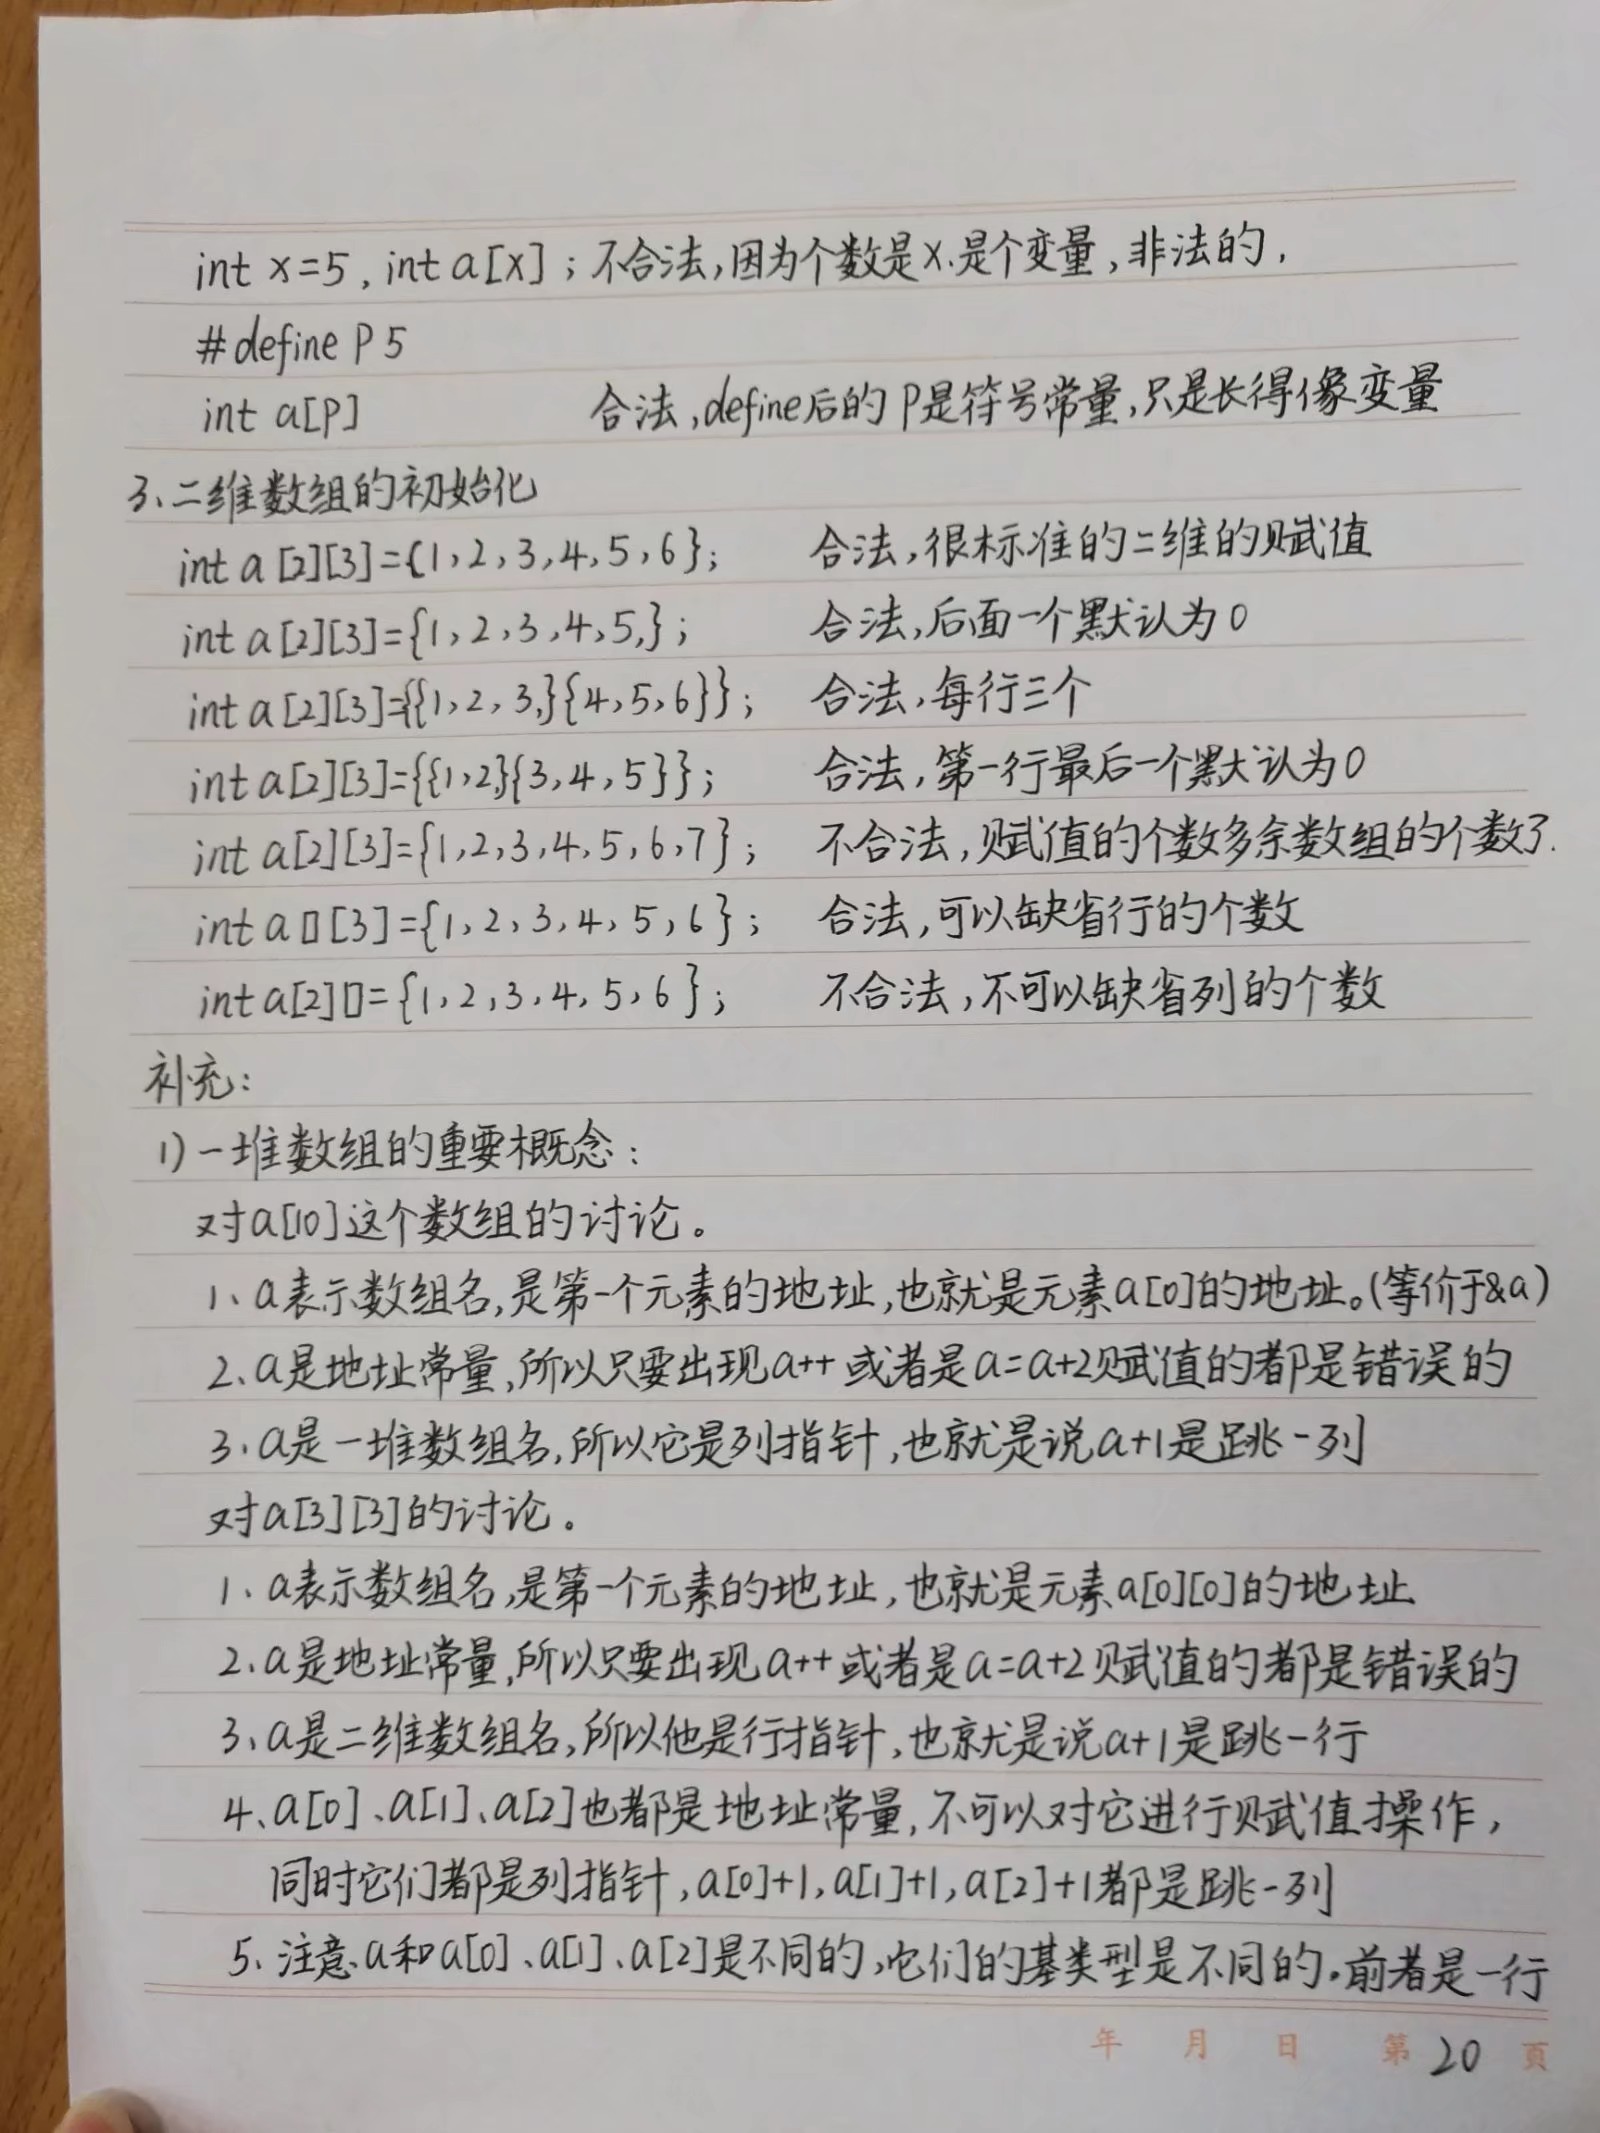 int x=5, int a[x]; 不合法,因为个数是x.是个变量,非法的,
#define P 5
int a[P] 合法,define后的P是符号常量,只是长得像变量
3、二维数组的初始化
int a[2][3]={1,2,3,4,5,6}; 合法,很标准的二维的赋值
int a[2][3]={1,2,3,4,5,}; 合法,后面一个默认为0
int a[2][3]={{1,2,3,}{4,5,6}}; 合法,每行三个
int a[2][3]={{1,2,}{3,4,5}}; 合法,第一行最后一个默认为0
int a[2][3]={1,2,3,4,5,6,7}; 不合法,赋值的个数多余数组的个数了.
int a[][3]={1,2,3,4,5,6}; 合法,可以缺省行的个数
int a[2][]={1,2,3,4,5,6}; 不合法,不可以缺省列的个数
补充:
1)一堆数组的重要概念:
对a[10]这个数组的讨论。
1、a表示数组名,是第一个元素的地址,也就是元素a[0]的地址。(等价于&a)
2、a是地址常量,所以只要出现a++或者是a=a+2赋值的都是错误的
3、a是一堆数组名,所以它是列指针,也就是说a+1是跳一列
对a[3][3]的讨论。
1、a表示数组名,是第一个元素的地址,也就是元素a[0][0]的地址
2、a是地址常量,所以只要出现a++或者是a=a+2赋值的都是错误的
3、a是二维数组名,所以他是行指针,也就是说a+1是跳一行
4、a[0]、a[1]、a[2]也都是地址常量,不可以对它进行赋值操作,
同时它们都是列指针,a[0]+1,a[1]+1,a[2]+1都是跳一列
5、注意a和a[0]、a[1]、a[2]是不同的,它们的基类型是不同的。前者是一行
年 月 日 第20頁